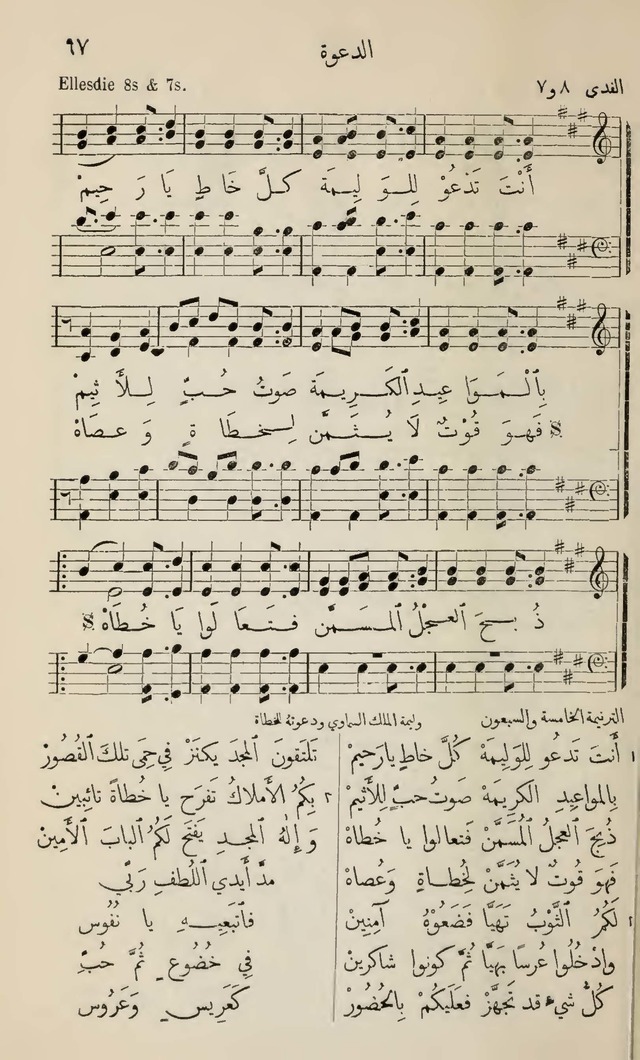 ٦٧
الدعوة
Ellesdie 8s & 7s.
الفدى ٨ و٧
أَنْتَ تَدْعُوْ لِلْـوَ لِيـمَةِ كـلَّ خَاطٍ يَا رَ حِيمْ
بِٱلْـمَـوَا عِيدِ ٱلكَـرِيـمَةِ صَوْتُ حُـبٍّ لِـلأَ ثِيمْ
فَهْـوَ قُوْتٌ لَا يُـثَـمَّنْ لِـخـطَا ةٍ وَ عـصَاهْ
ذُ بـحَ ٱلعـجْلُ ٱلْـمُـسَـمَّنْ فـتـعَا لَوا يَا خُـطَاهْ
الترنيمة الخامسة والسبعون
وليمة الملك السماوي ودعوته للخطاة
١ أَنتَ تَدعُو لِلوَلِيمَهْ كُلَّ خاطٍ يا رَحِيمْ
بِالمواعِيدِ الكَرِيمَهْ صَوتُ حبٍّ لِلأَثِيمْ
ذُبِحَ العِجلُ المُسَمَّنْ فَتعالوا يا خُطاهْ
فَهوَ قوتٌ لا يُثَمَّنْ لِخُطاةٍ وَعُصاهْ
٢ لَكُمُ الثَّوْبُ تَهَيَّا فَضَعُوْهُ آمِنِينْ
وادْخُلُوا عُرسًا بَهِيَّا ثُمَّ كونوا شاكرينْ
كُلُّ شيءٍ قد تَجَهَّزْ فعَلَيكُمْ بِالحُضُورْ
تَلتَقونَ ٱلمَجدَ يكنَزْ فِي حِمَى تلكَ ٱلقُصُورْ
٣ بِكُمُ الأَملاكُ تَفرَح يا خُطاةً تائِبِينْ
وَإِلٰهُ ٱلمَجدِ يَفتَح لَكُمُ ٱلبابَ ٱلأَمِينْ
مدَّ أَيدِي ٱللُطفِ رَبِّي
فٱتبَعِيـهِ يا نُفُوس
فِي خُضُوعٍ ثُمَّ حُبِّ
كَعَرِيسٍ وَعَرُوس